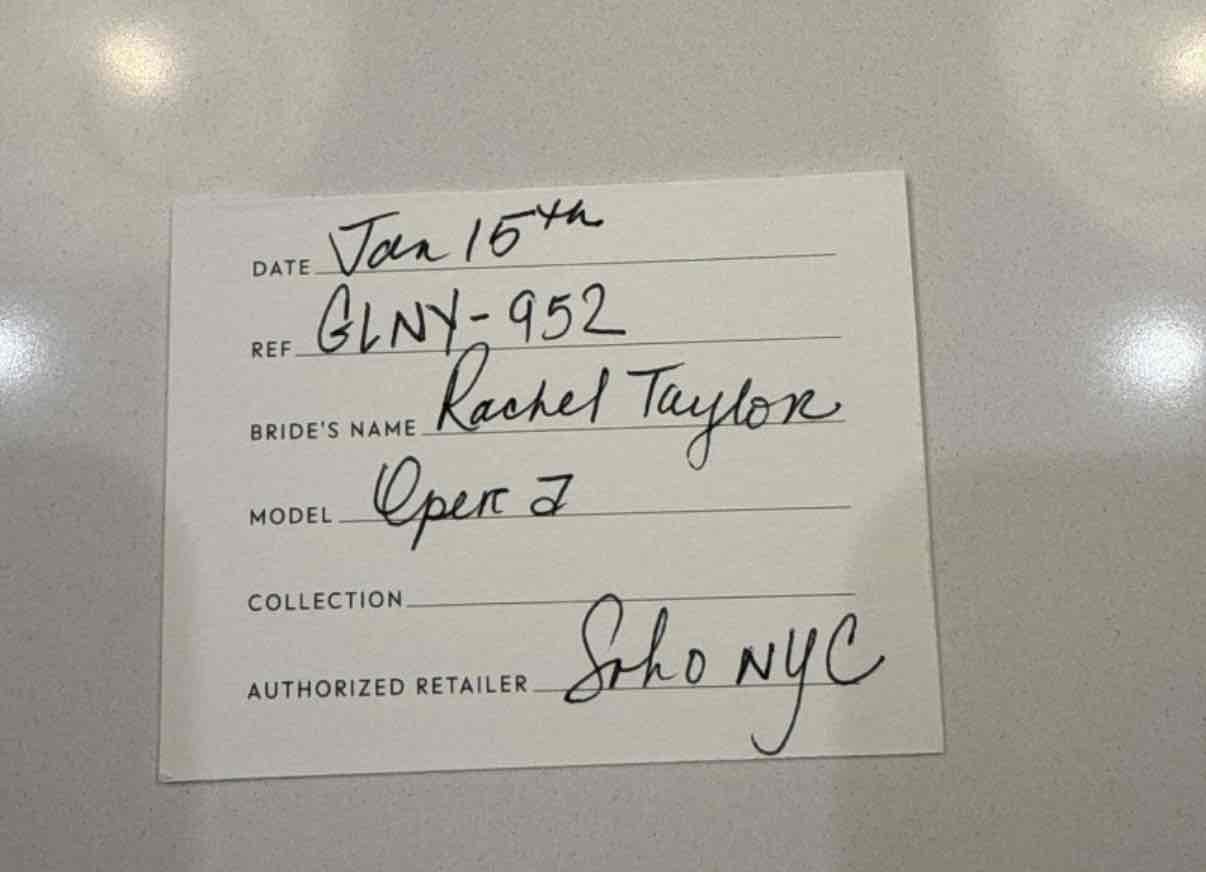 DATE Jan 15th
REF GLNY-952
BRIDE'S NAME Rachel Taylor
MODEL
COLLECTION
AUTHORIZED RETAILER Soho NYC